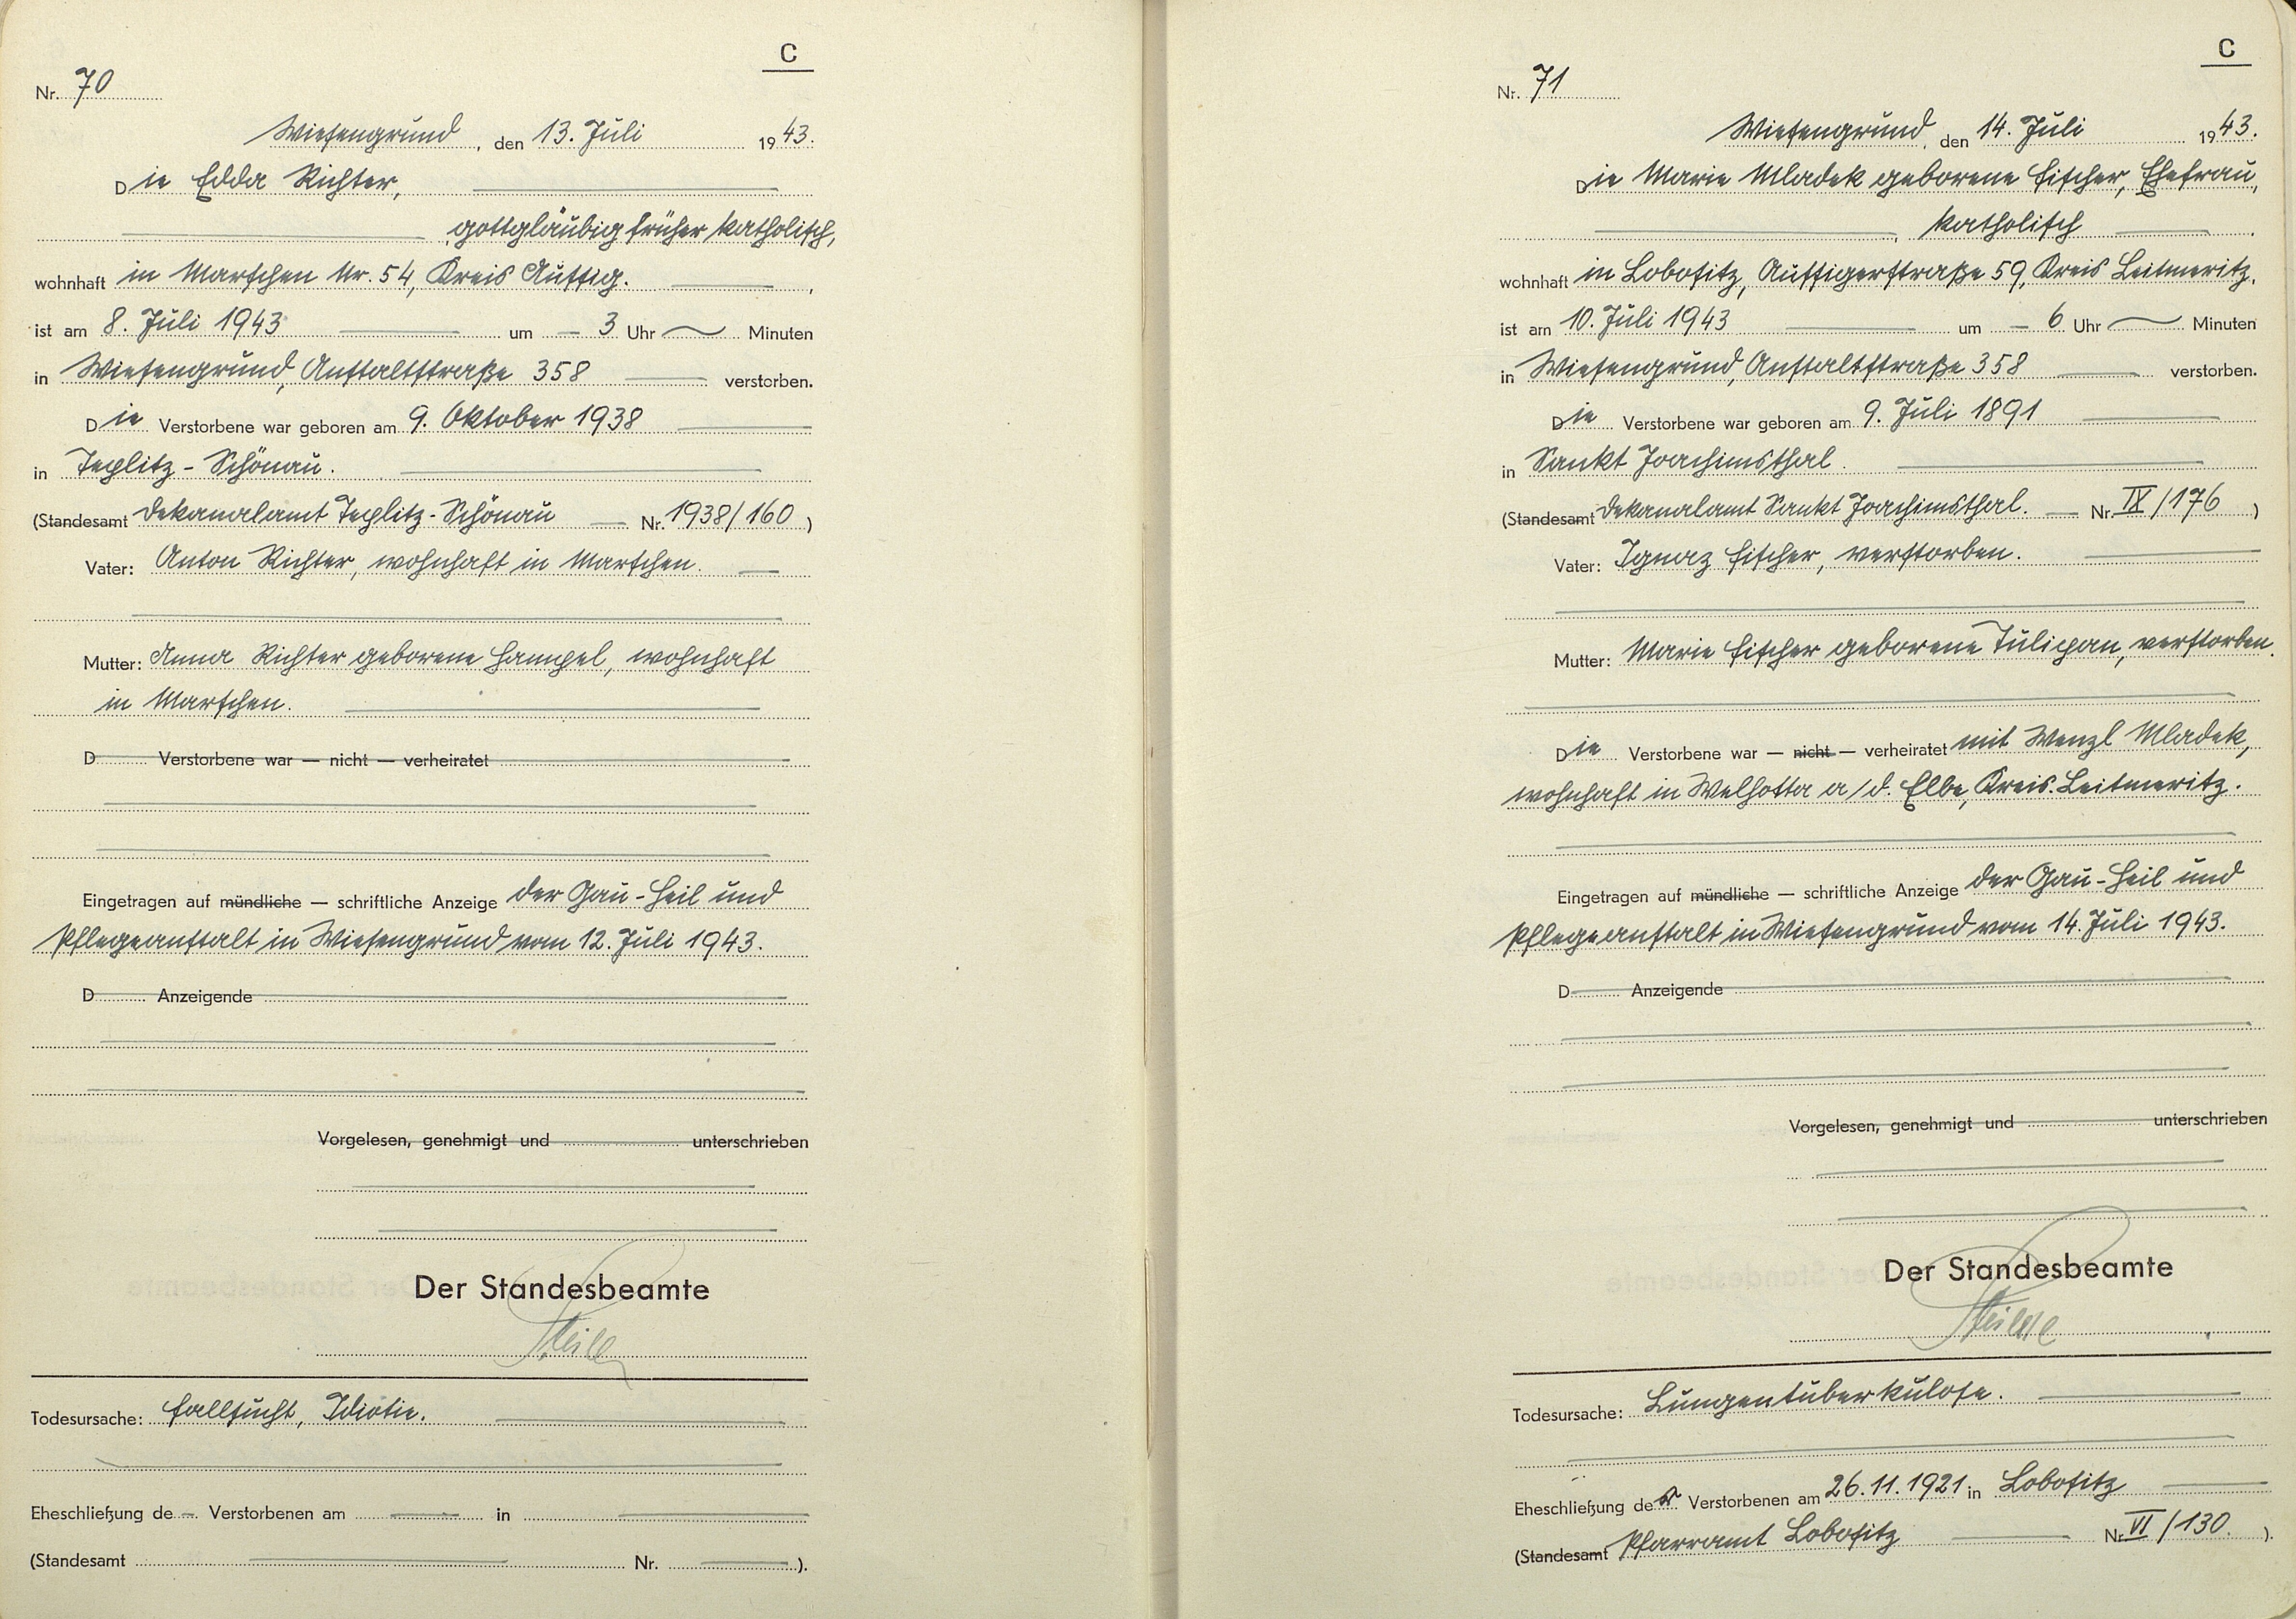 C
Nr. 70
Wiesengrund, den 13. Juli 1943.
Die Edda Richter,
gottgläubig früher katholisch,
wohnhaft in Marschen Nr. 54, Kreis Aussig.
ist am 8. Juli 1943 um — 3 Uhr Minuten
in Wiesengrund, Anstaltstraße 358 verstorben.
Die Verstorbene war geboren am 9. Oktober 1938
in Teplitz-Schönau.
(Standesamt Dekanalamt Teplitz-Schönau — Nr. 1938/160)
Vater: Anton Richter, wohnhaft in Marschen.
Mutter: Anna Richter geborene Hampel, wohnhaft
in Marschen.
D Verstorbene war — nicht — verheiratet
Eingetragen auf mündliche — schriftliche Anzeige der Gau-Heil und
Pflegeanstalt in Wiesengrund vom 12. Juli 1943.
D Anzeigende
Vorgelesen, genehmigt und unterschrieben
Der Standesbeamte
Todesursache: Fallsucht, Idiotie.
Eheschließung de — Verstorbenen am in
(Standesamt Nr. ).
C
Nr. 71
Wiesengrund, den 14. Juli 1943.
Die Marie Mladek geborene Fischer, Ehefrau,
katholisch
wohnhaft in Lobositz, Aussigerstraße 59, Kreis Leitmeritz.
ist am 10. Juli 1943 um — 6 Uhr Minuten
in Wiesengrund, Anstaltstraße 358 verstorben.
Die Verstorbene war geboren am 9. Juli 1891
in Sankt Joachimsthal.
(Standesamt Dekanalamt Sankt Joachimsthal. — Nr. IX/176)
Vater: Ignaz Fischer, verstorben.
Mutter: Marie Fischer geborene Tulipan, verstorben.
Die Verstorbene war — nicht — verheiratet mit Wenzl Mladek,
wohnhaft in Welhotta a/d. Elbe, Kreis Leitmeritz.
Eingetragen auf mündliche — schriftliche Anzeige der Gau-Heil und
Pflegeanstalt in Wiesengrund vom 14. Juli 1943.
D Anzeigende
Vorgelesen, genehmigt und unterschrieben
Der Standesbeamte
Todesursache: Lungentuberkulose.
Eheschließung der Verstorbenen am 26.11.1921 in Lobositz
(Standesamt Pfarramt Lobositz Nr. VI/130.).